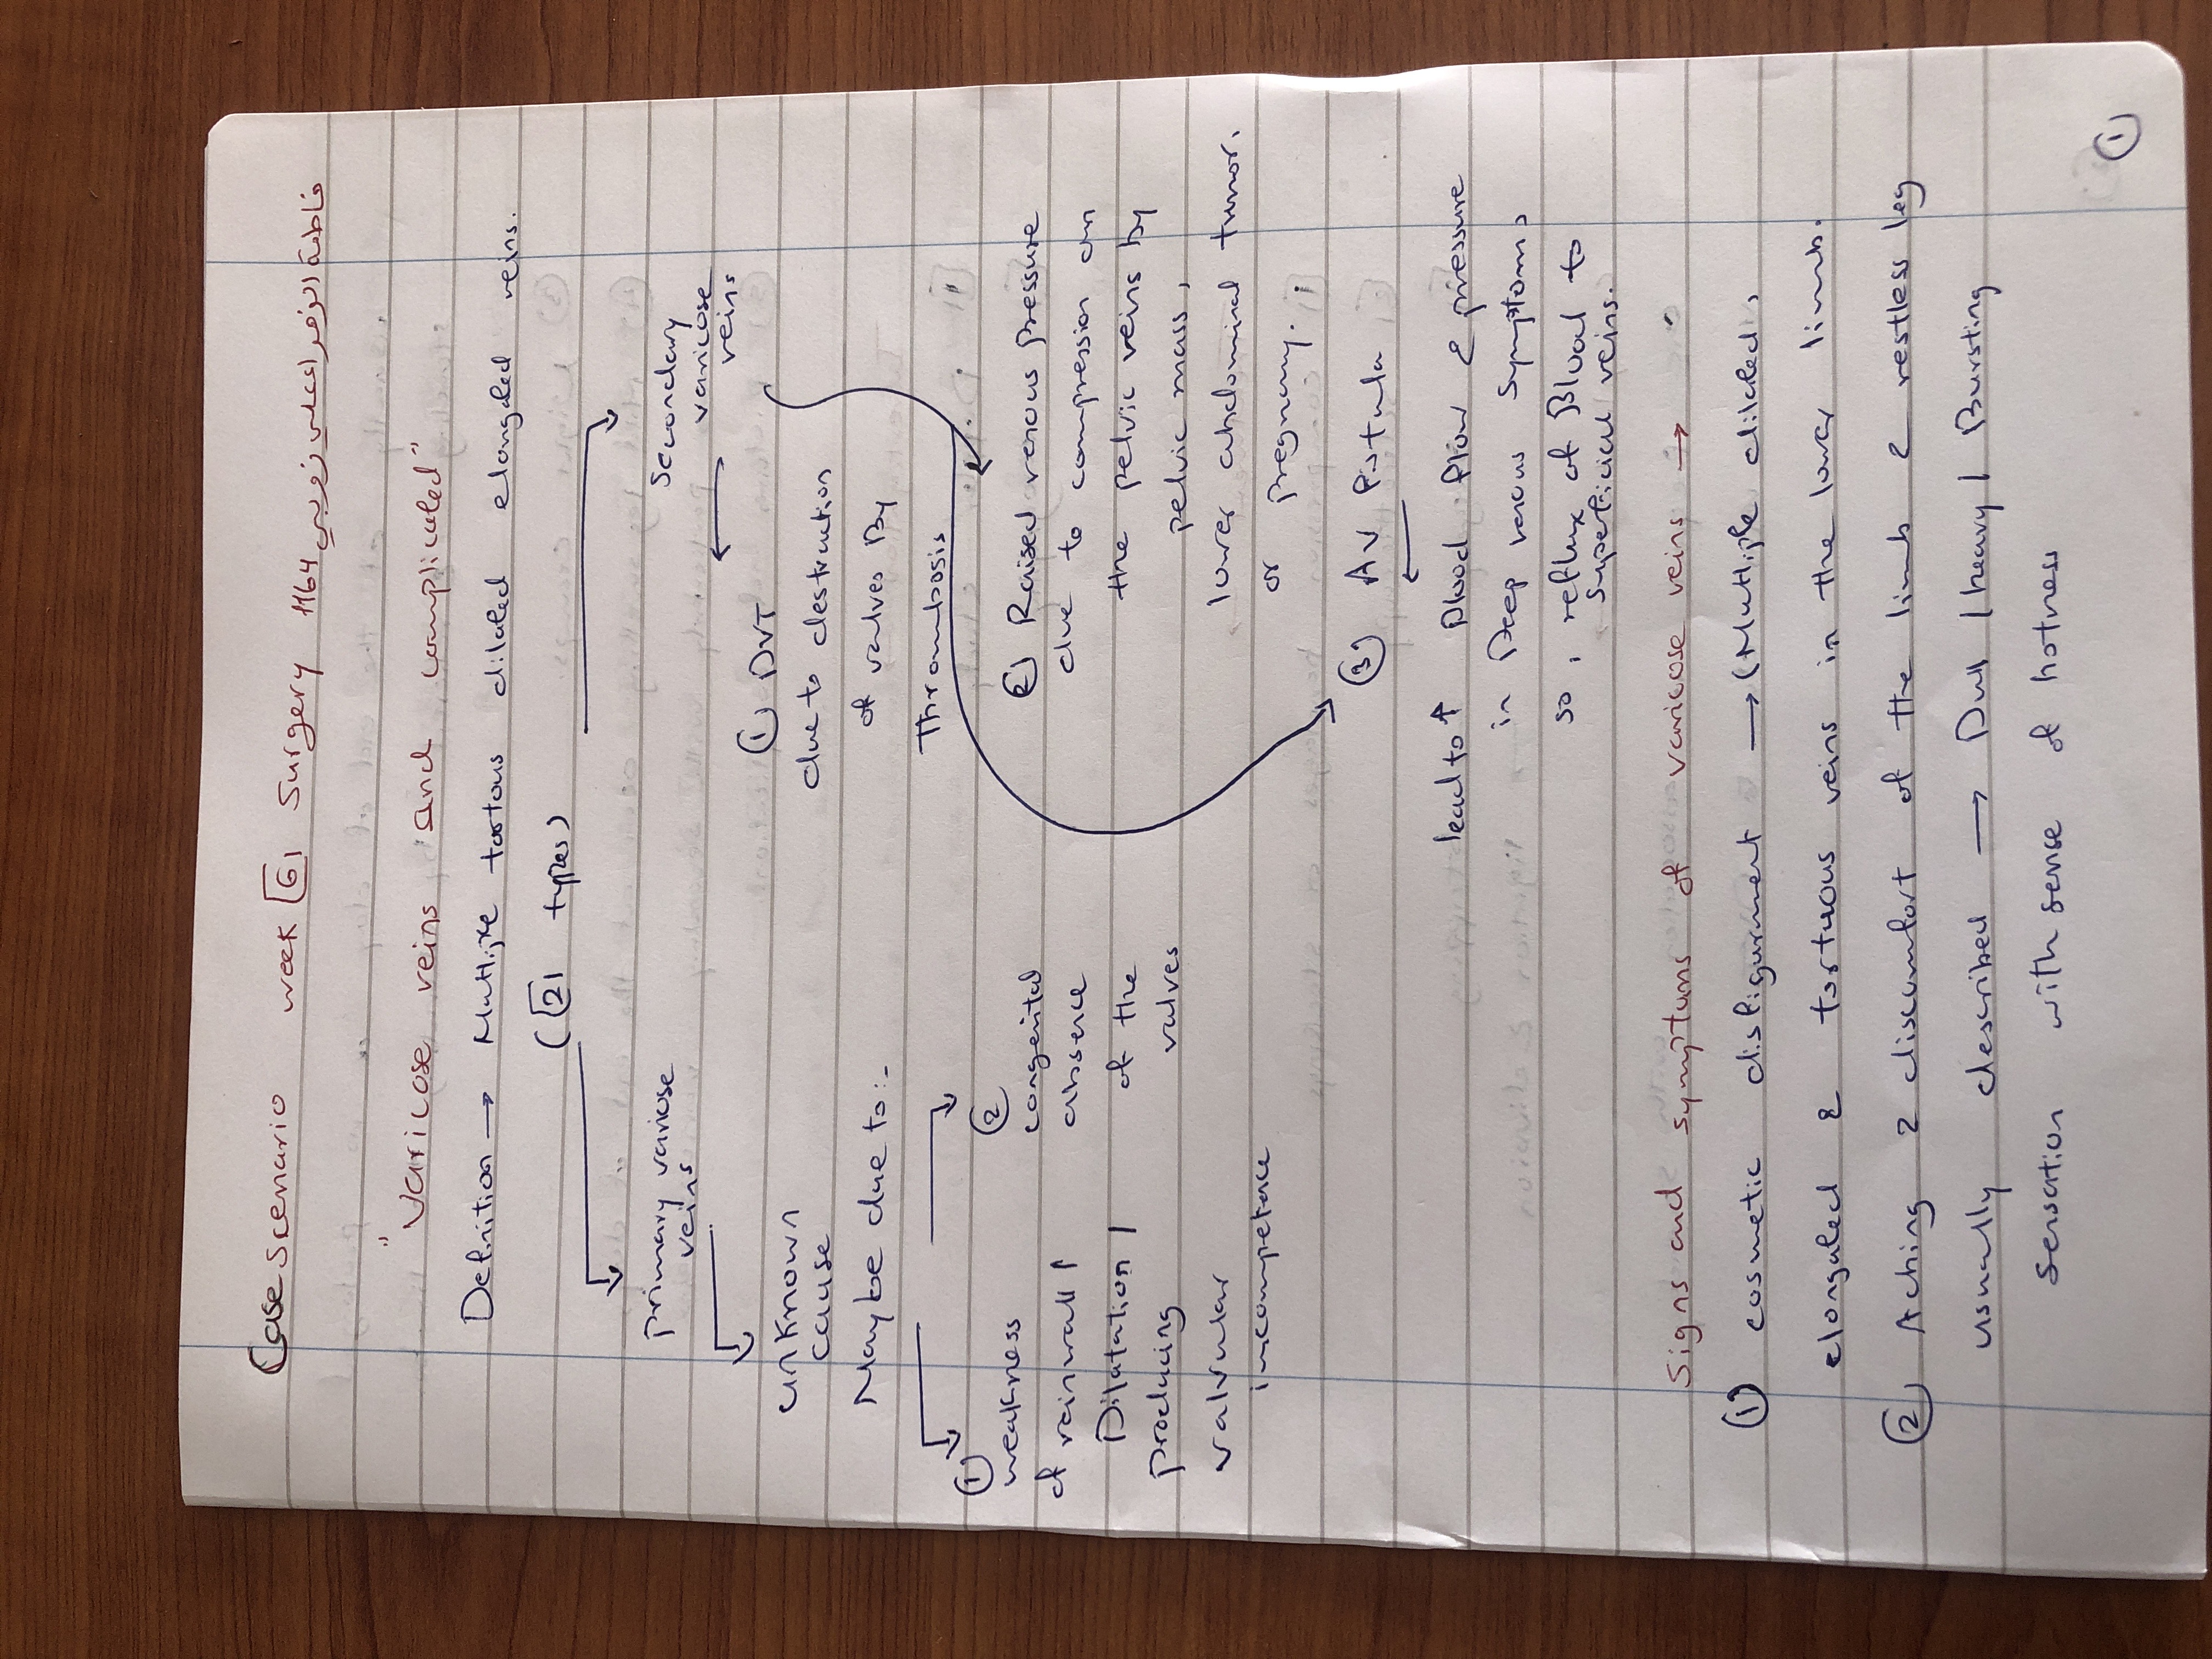 Case Scenario week 6 Surgery 1164 فاطمة الزهراء
" Varicose veins and complicated"
Definition → Multipe tortous dilated elongated veins.
(2 types)
Primary variose
veins
unknown
cause
May be due to:-
①
weakness
of vein wall /
Dilatation /
producing
valvular
incompetence
②
congenital
absence
of the
valves
Secondary
varicose
veins
① DVT
due to destruction
of valves By
Thrombosis
② Raised venous pressure
due to compression on
the pelvic veins by
pelvic mass,
lower abdominal tumor,
or pregnany.
③ AV Fistula
lead to ↑ blood flow & pressure
in Deep venous symptoms
so, reflux of Blood to
superficial veins.
Signs and symptoms of varicose veins →
① cosmetic disfigurment → (Multiple dilated,
elongated & tortuous veins in the lower limb.
② Aching & discomfort of the limb & restless leg
usually described → Dull / heavy / Bursting
Sensation with sense of hotness
①